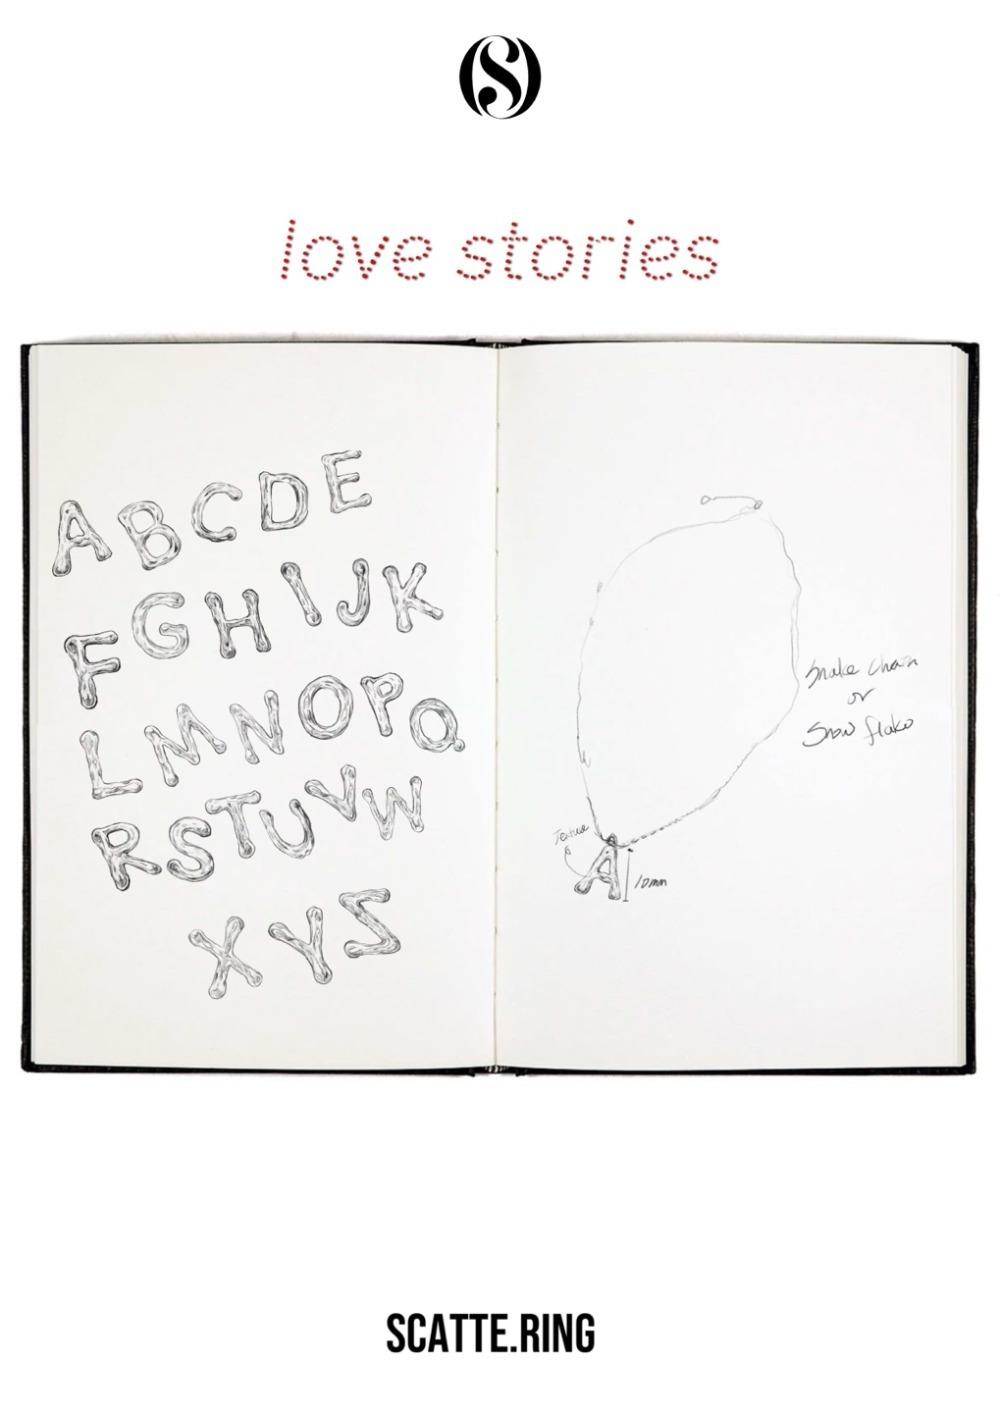 S
love stories
A B C D E
F G H I J K
L M N O P Q
R S T U V W
X Y Z
Snake chain
or
Snow flake
Texture
A
10mm
SCATTE.RING